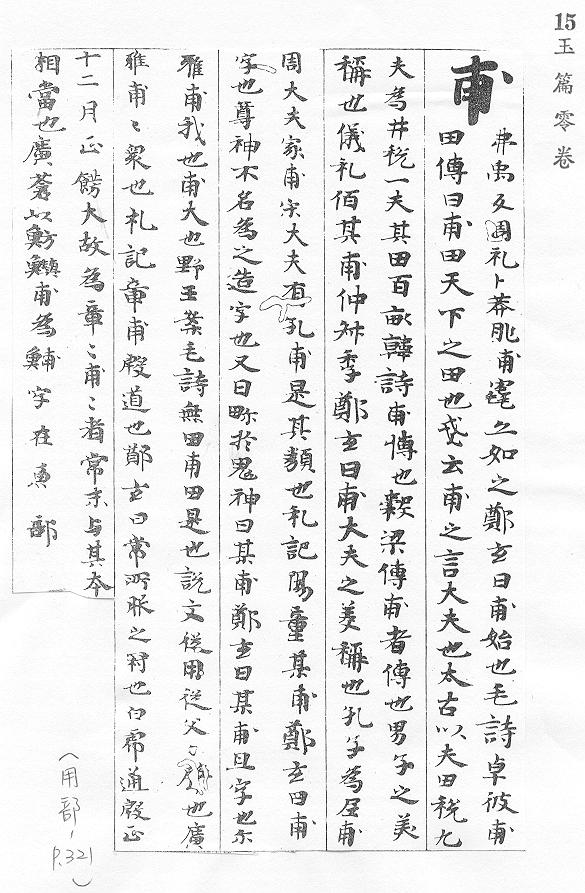 15
玉篇零卷
甫
弗禹反周礼卜葬兆甫竁亦如之鄭玄曰甫始也毛詩倬彼甫
田傳曰甫田天下之田也箋云甫之言大夫也太古以夫田税九
夫為井税一夫其田百畝韓詩甫傳也糓梁傳甫者傳也男子之美
稱也儀礼伯某甫仲叔季鄭玄曰甫大夫之美稱也孔子為尼甫
周大夫家甫宋大夫有孔甫是其類也礼記陽童某甫鄭玄曰甫
字也尊神不名為之造字也又曰畛於鬼神曰某甫鄭玄曰某甫且字也尒
雅甫我也甫大也野王案毛詩無田甫田是也説文従用従父〻也廣
雅甫〻衆也礼記章甫殷道也鄭玄曰常所服之冠也白席通殷正
十二月正餝大故為章〻甫〻者常末与其本
相當也廣蒼以魴鱮甫為鯆字在魚部
(用部, P.321)